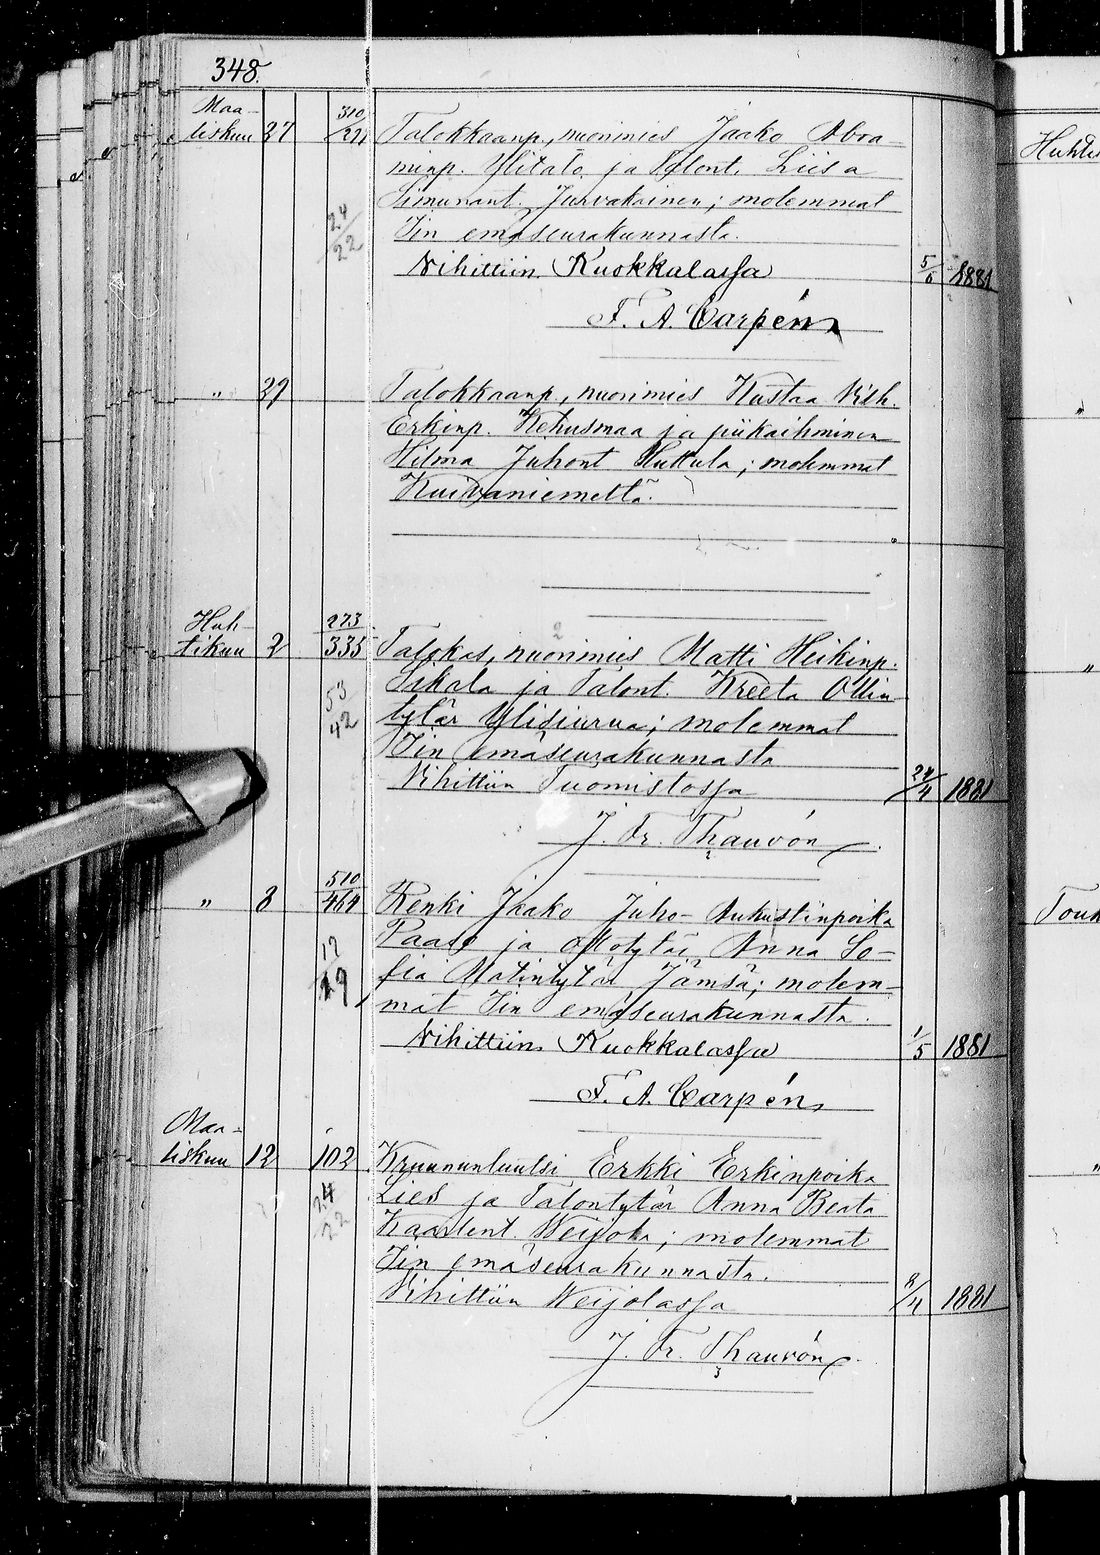 348.
Maa- 310
liskuu 27 271 Talokkaanp., nuorimies Jaako Abra-
minp. Ylitalo ja Talont. Liisa
24 Simunant. Jurvakainen; molemmat
22 Iin emäseurakunnasta.
Vihittiin Kuokkalassa 5/6 1881
F. A. Carpén
" 29 Talokkaanp., nuorimies Kustaa Vilh.
Erkinp. Kehusmaa ja piikaihminen
Hilma Juhont Hukula; molemmat
Kuivaniemeltä.
Huh- 273
tikuu 2 335 Talokas, nuorimies Matti Heikinp.
53 Iskala ja Talont. Kreeta Ollin
42 tytär Ylisiurua; molemmat
Iin emäseurakunnasta
Vihittiin Tuomistossa 24/4 1881
J. Fr. Thauvón
510
" 8 464 Renki Jaako Juho-Aukustinpoika
12 Paaso ja Anna So-
19 fia Matintytär Jämsä; molem-
mat Iin emäseurakunnasta.
Vihittiin Kuokkalassa 1/5 1881
F. A. Carpén
Maa-
liskuu 12 102 Kruununluutsi Erkki Erkinpoika
24 Lied ja Talontytär Anna Beata
22 Kaarlent. Weijola; molemmat
Iin emäseurakunnasta.
Vihittiin Weijolassa 8/4 1881
J. Fr. Thauvón
Huhti
"
"
Touk
"